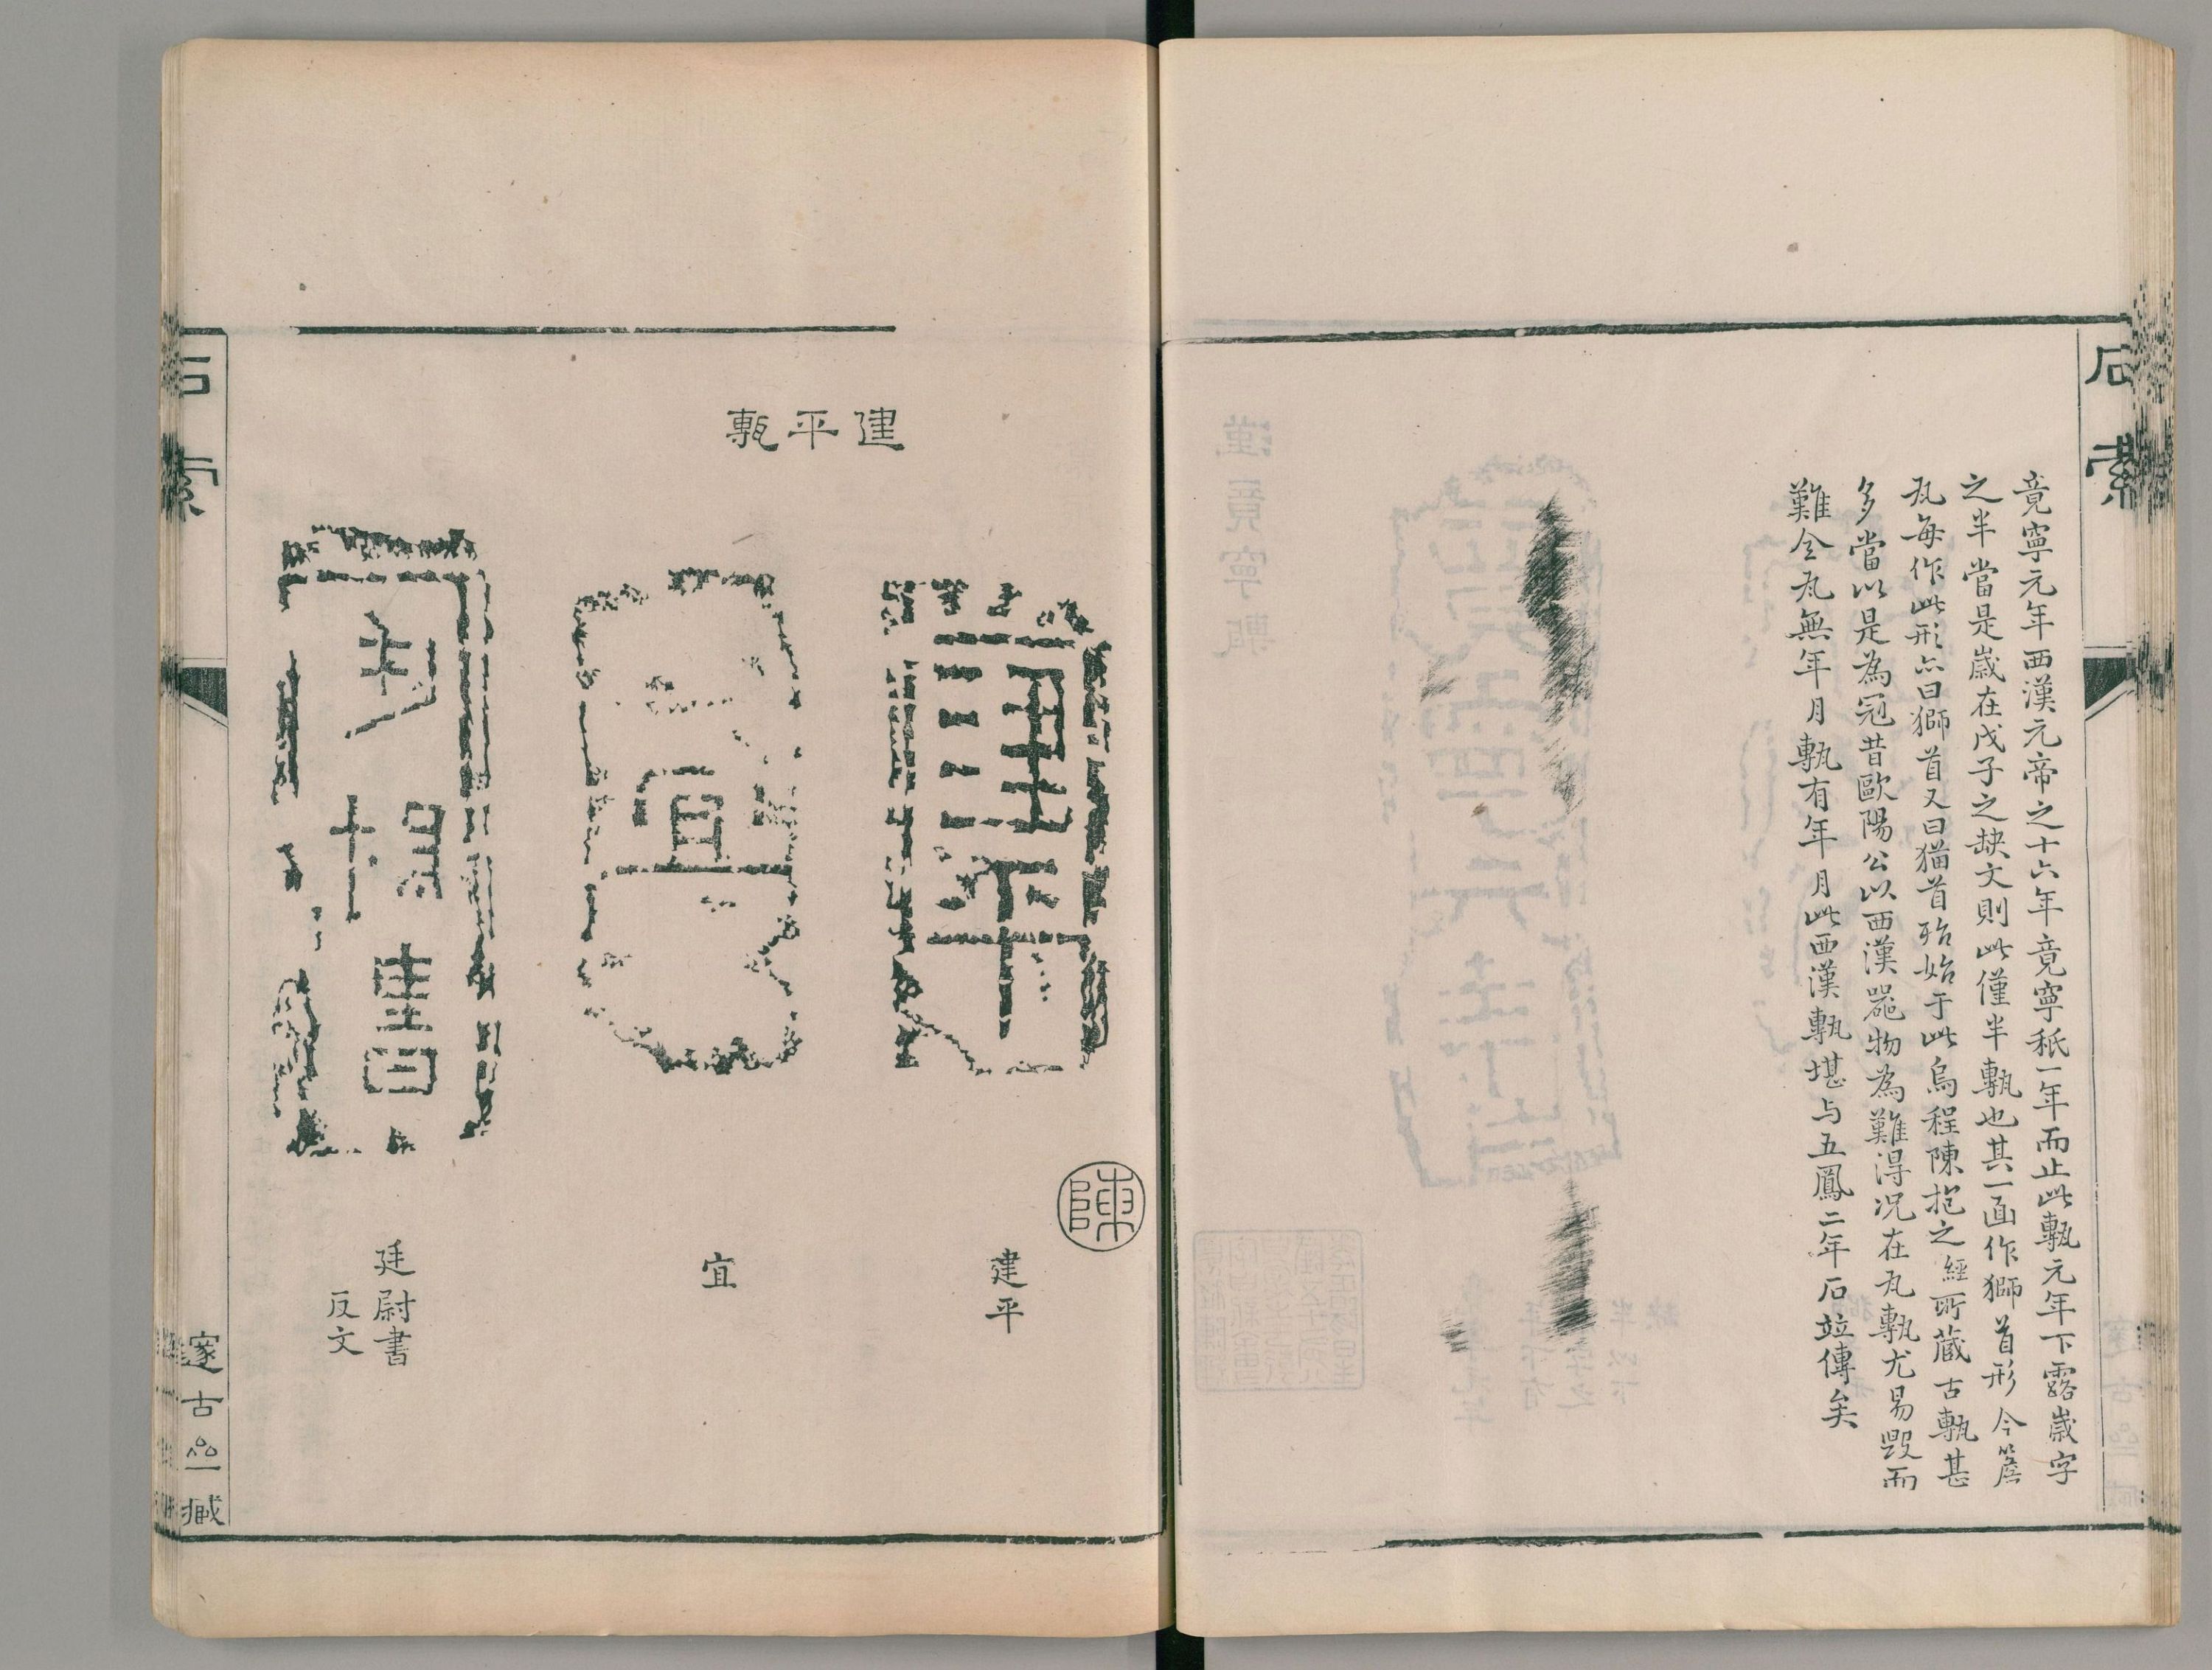 石索
竟寧元年西漢元帝之十六年竟寧秖一年而止此甎元年下露歲字
之半當是歲在戊子之缺文則此僅半甎也其一面作獅首形今簷
瓦每作此形亦曰獅首又曰猫首殆始于此烏程陳抱之經所藏古甎甚
多當以是為冠昔歐陽公以西漢器物為難得况在瓦甎尤易毀而
難全瓦無年月甎有年月此西漢甎堪与五鳳二年石竝傳矣
建平甎
建平
陳
建平
宜
宜
廷尉書
反文
石索
邃古亝臧